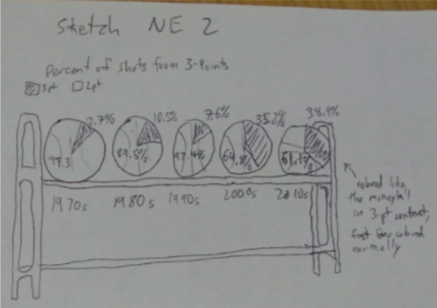 Sketch NE 2
Percent of shots from 3-Points
3pt 2pt
2.7% 10.5% 7.6% 35.2% 38.9%
97.3 89.5% 64.8% 61.1%
1970s 1980s 1990s 2000s 2010s
colored like
the moneyball
in 3-pt contest,
first four colored
normally